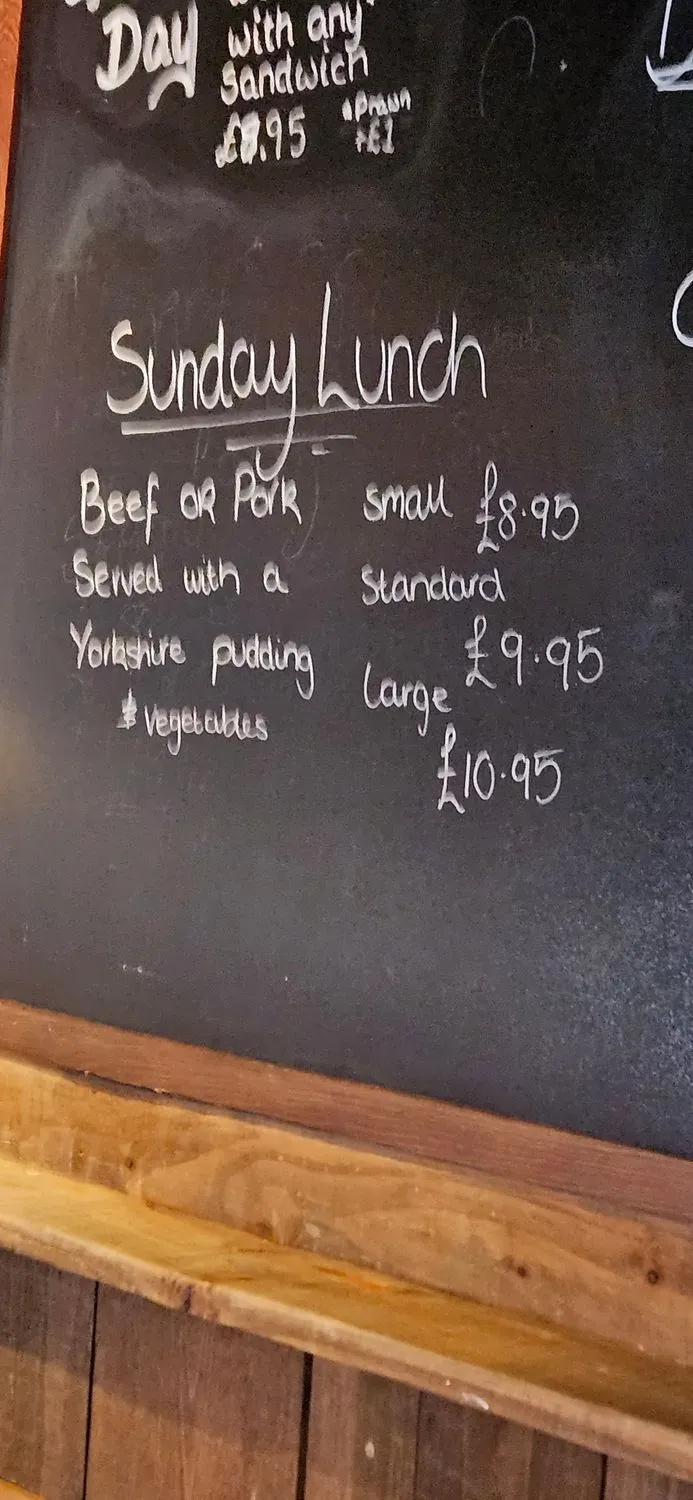 Day
with any
sandwich
*Prawn
+£1
Sunday Lunch
Beef OR Pork
Served with a
Yorkshire pudding
& vegetables
small £8.95
Standard
£9.95
Large
£10.95